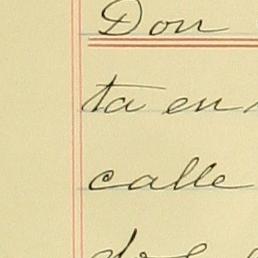 Don
ta en
calle